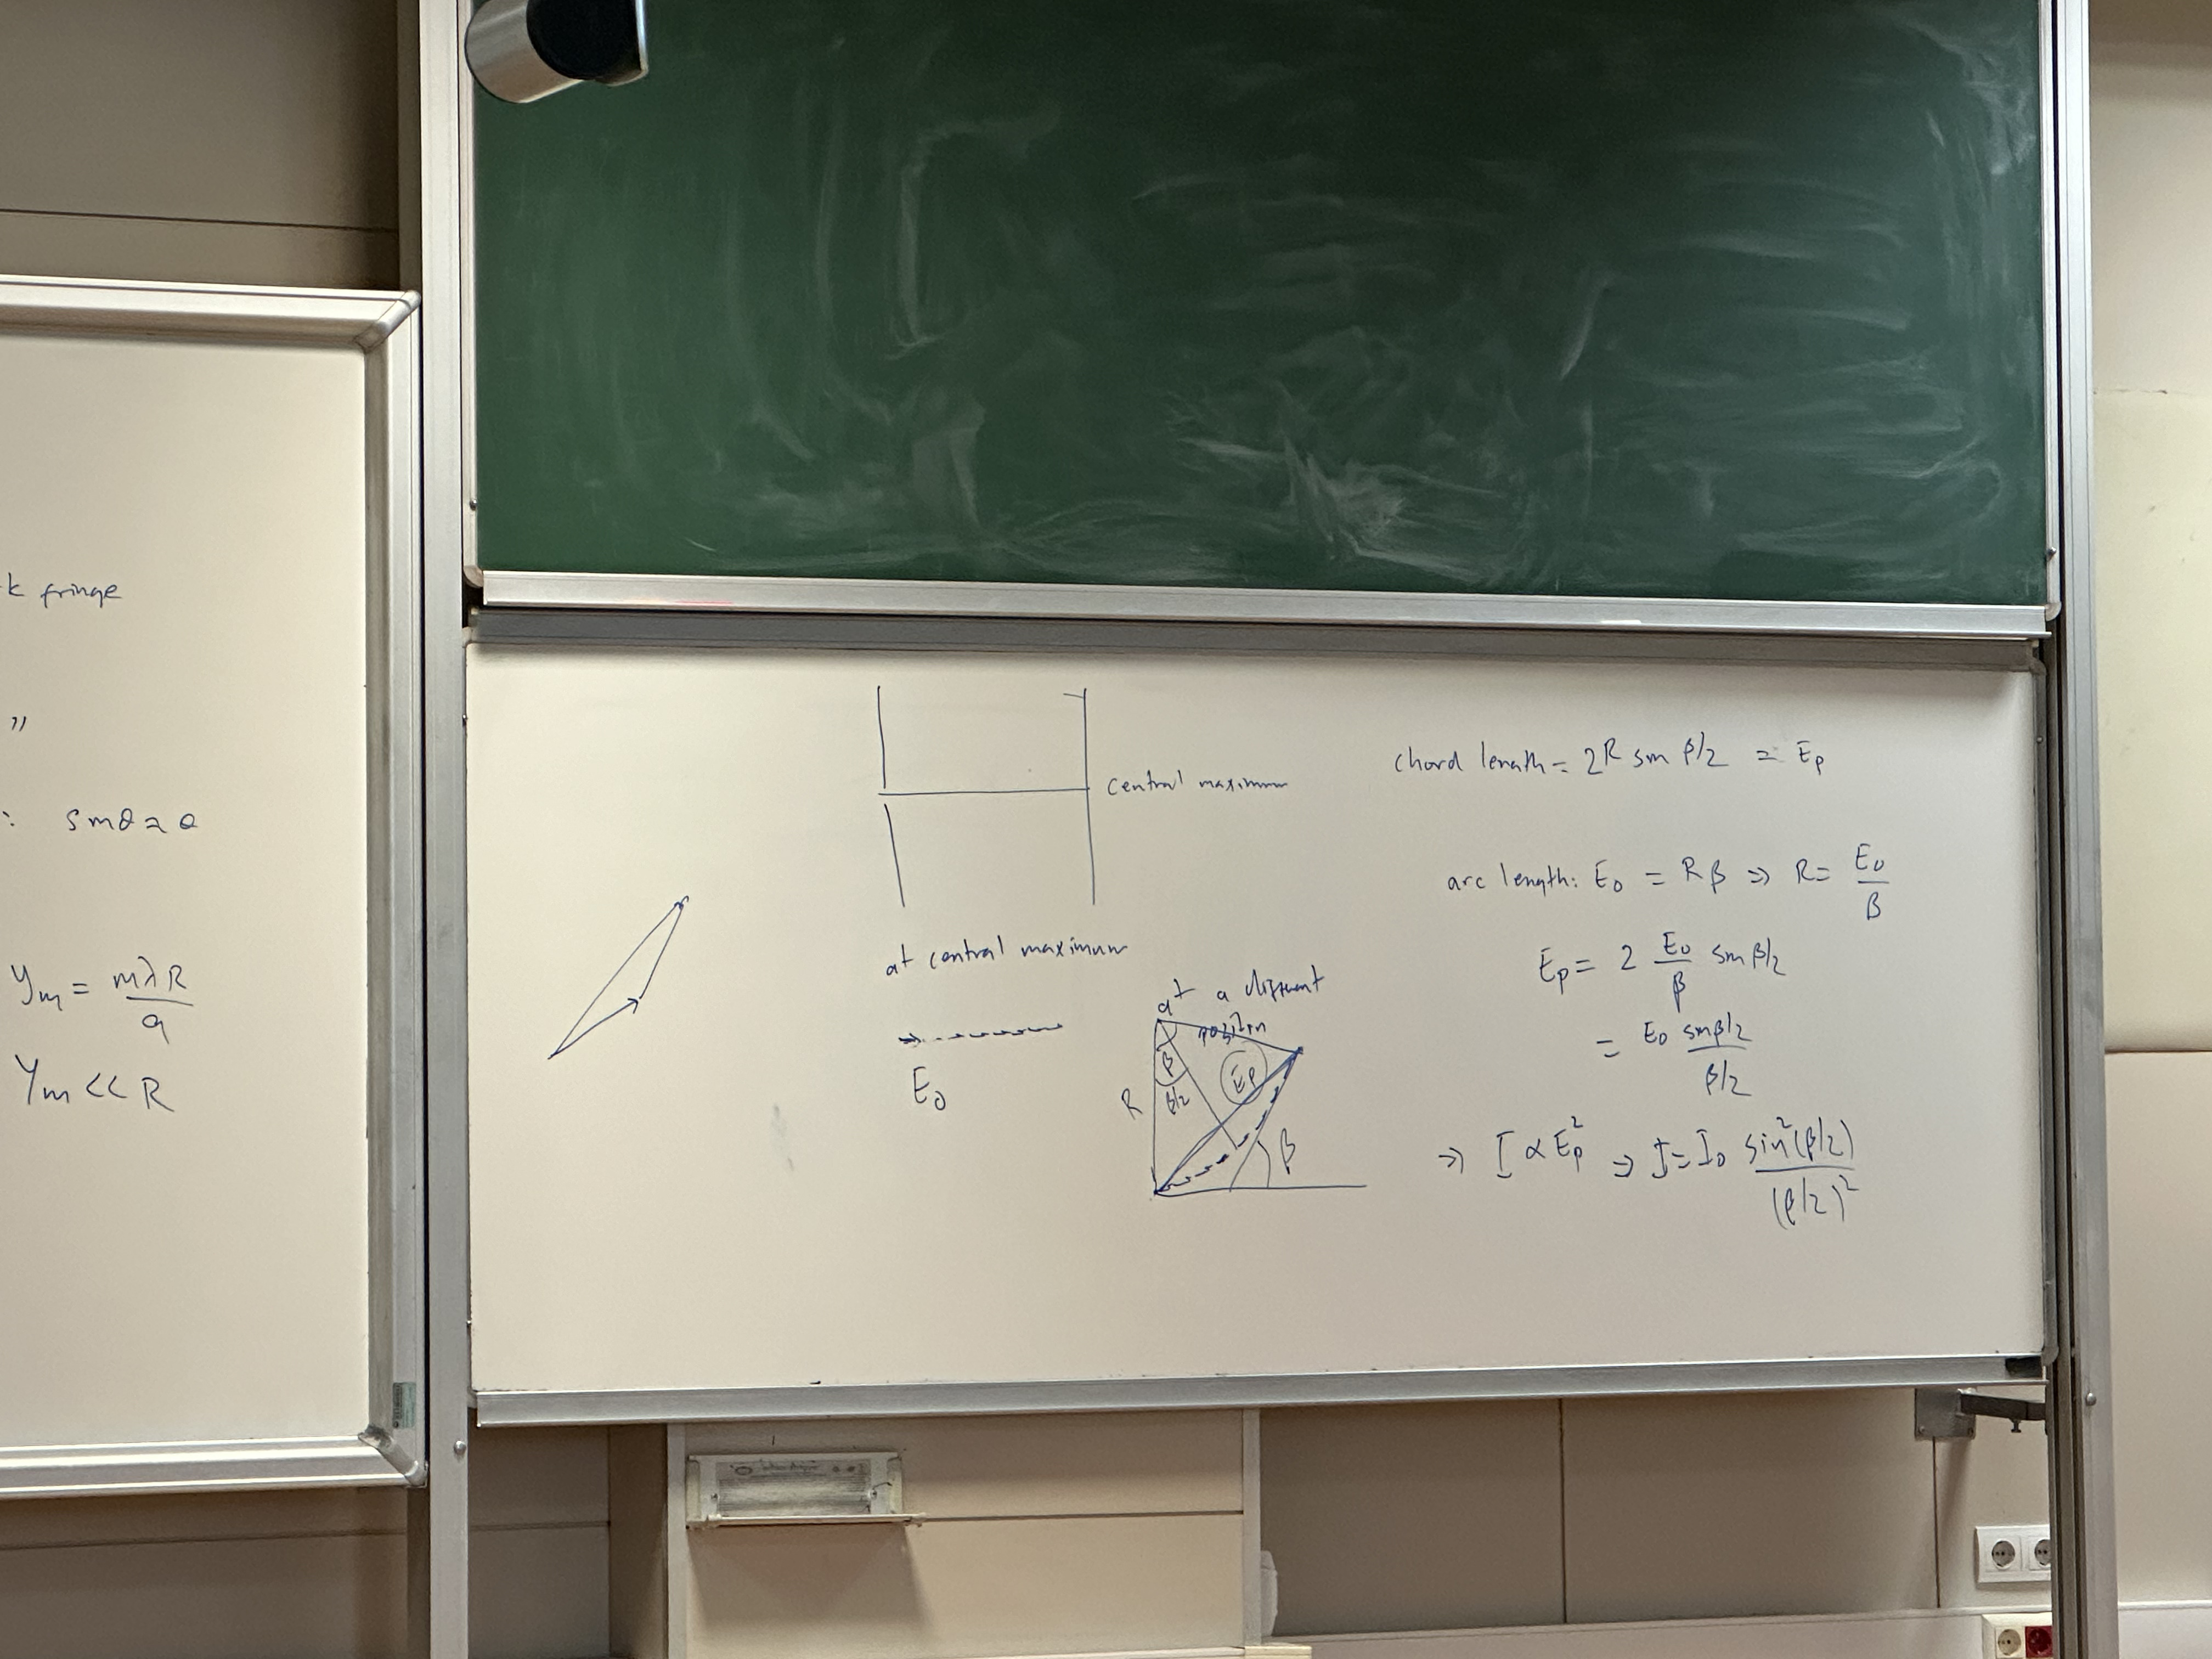 k fringe
"
: sinθ ≈ θ
y_m = mλR / a
y_m << R
central maximum
at central maximum
E_0
at a different
position
β
β/2
R
E_p
β
chord length = 2R sin β/2 = E_p
arc length: E_0 = Rβ ⇒ R = E_0 / β
E_p = 2 E_0/β sin β/2
= E_0 sin β/2 / β/2
⇒ I ∝ E_p² ⇒ I = I_0 sin²(β/2) / (β/2)²